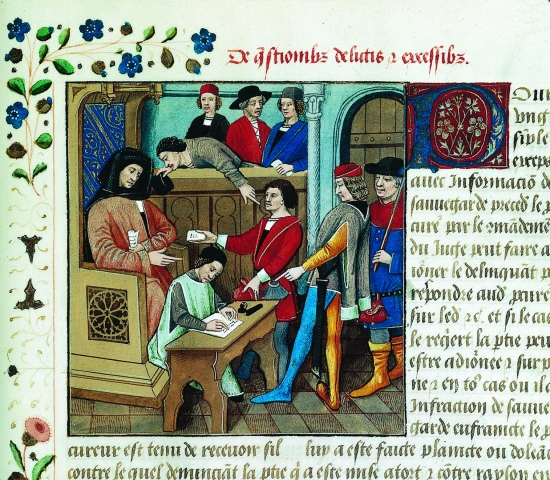 De q̃stiombz delictis ⁊ excessibz.
our
vng
siple
excep
auec Informacio de
sauuegarde preced le p
cure par le mãdeme
du Juge peut faire a
iõner le delinquãt p
respondre aud pcure
sur led ⁊c. et si le cas
le reqiert la ptie peu
estre adiõnee ⁊ sur p
ne ⁊ en to⁹ cas ou il e
Infraction de sauue
garde enfraincte le p
cureur est tenu de receuoir sil luy a este faicte plaincte ou doleãc
contre le quel denunciãt la ptie q̃ a este mise a tort ⁊ cõtre rayson en